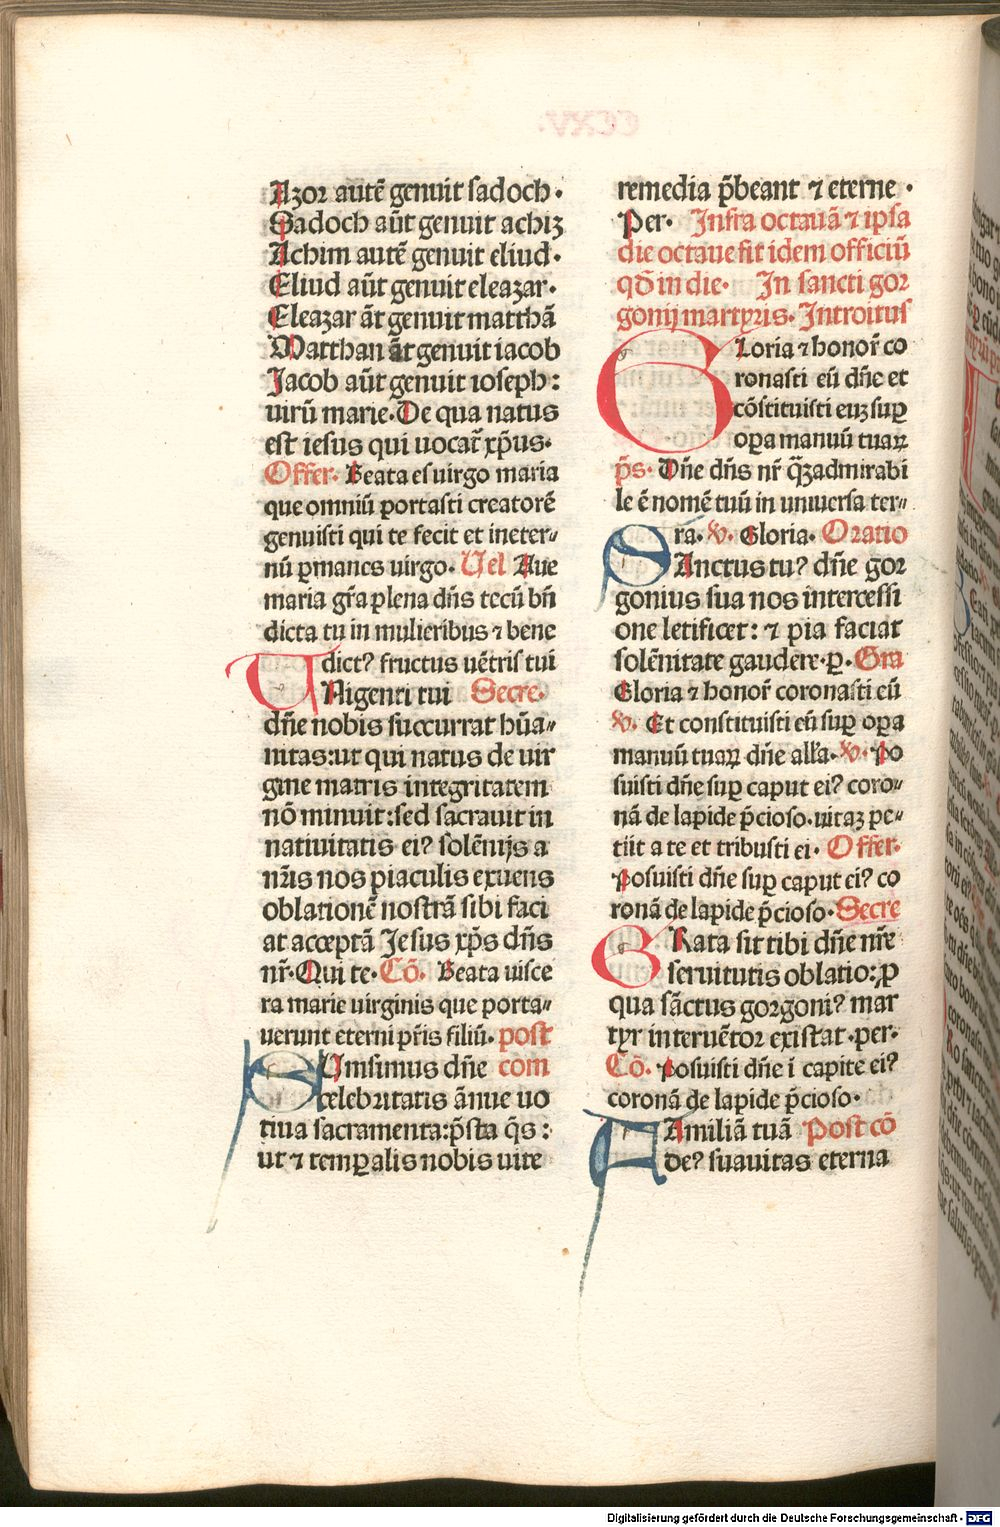 Azor autē genuit sadoch·
Sadoch aūt genuit achiꝫ
Achim autē genuit eliud·
Eliud aūt genuit eleazar·
Eleazar āt genuit matthā
Matthan āt genuit iacob
Jacob aūt genuit ioseph:
uirū marie·De qua natus
est iesus qui uocat᷑ xp̄us·
Offer· Beata es uirgo maria
que omniū portasti creatorē
genuisti qui te fecit et ineter⸗
nū ꝑmanes uirgo· Uel Aue
maria gr̄a plena dn̄s tecū bn̄
dicta tu in mulieribus ⁊ bene
dictꝰ fructus uētris tui
UNigenti tui Secre·
dn̄e nobis succurrat hūa⸗
nitas:ut qui natus de uir
gine matris integritatem
nō minuit:sed sacrauit in
natiuitatis eiꝰ solēnijs a
nr̄is nos piaculis exuens
oblationē nostrā sibi faci
at acceptā Jesus xp̄s dn̄s
nr̄·Qui te·Cō· Beata uisce
ra marie uirginis que porta⸗
uerunt eterni pr̄is filiū· post
SUmsimus dn̄e com̄
celebritatis ānue uo
tiua sacramenta:p̄sta q̄s:
ut ⁊ temꝑalis nobis uite
remedia p̄beant ⁊ eterne·
Per· Infra octauā ⁊ ipsa
die octaue fit idem officiū
qd̄ in die· In sancti gor
gonij martyris· Introitus
Gloria ⁊ honor̄ co
ronasti eū dn̄e et
cōstituisti euꝫ suꝑ
oꝑa manuū tuaꝝ
p̄s· Dn̄e dn̄s nr̄ q̄ꝫ admirabi
le ē nomē tuū in uniuersa ter⸗
ra· v· Gloria· Oratio
SAnctus tuꝰ dn̄e gor
gonius sua nos intercessi
one letificet: ⁊ pia faciat
solēnitate gaudere·ꝑ· Gra
Gloria ⁊ honor̄ coronasti eū
v· Et constituisti eū suꝑ oꝑa
manuū tuaꝝ dn̄e all'a· v· Po
suisti dn̄e suꝑ caput eiꝰ coro⸗
nā de lapide p̄cioso·uitaꝫ pe⸗
tijt a te et tribusti ei· Offer·
Posuisti dn̄e suꝑ caput eiꝰ co
ronā de lapide p̄cioso·Secre
GRata sit tibi dn̄e nr̄e
seruitutis oblatio:ꝓ
qua sāctus gorgoniꝰ mar
tyr interuētor existat·per·
Cō· Posuisti dn̄e i capite eiꝰ
coronā de lapide p̄cioso·
FAmiliā tuā Post cō
deꝰ suauitas eterna
Digitalisierung gefördert durch die Deutsche Forschungsgemeinschaft - DFG